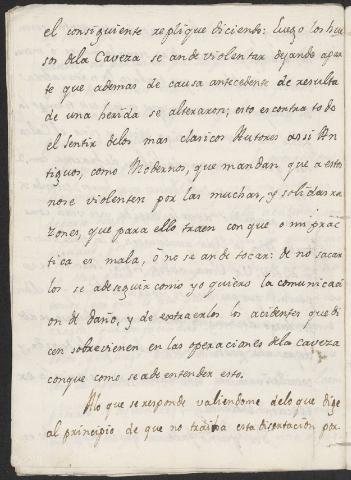 el consiguiente replique diciendo: Luego los hue
sos dela Caveza se ande violentar dejando apar
te que ademas de causa antecedente de resulta
de una herida se alteraron; esto es contra todo
el sentir delos mas clasicos Autores assi An
tiguos, como Modernos, que mandan que a estos
nose violenten por las muchas, y solidas ra
zones, que para ello traen con que o mi prac
tica es mala, ò no se ande tocar: de no sacar
los se adeseguir como yo quiera la comunicaci
on de daño, y de extraerlos los accidentes que di
cen sobrevienen en las operaciones dela Caveza
conque como se ade entender esto.
Alo que se responde valiendome delo que dige
al principio de que no traìa esta disertación por-